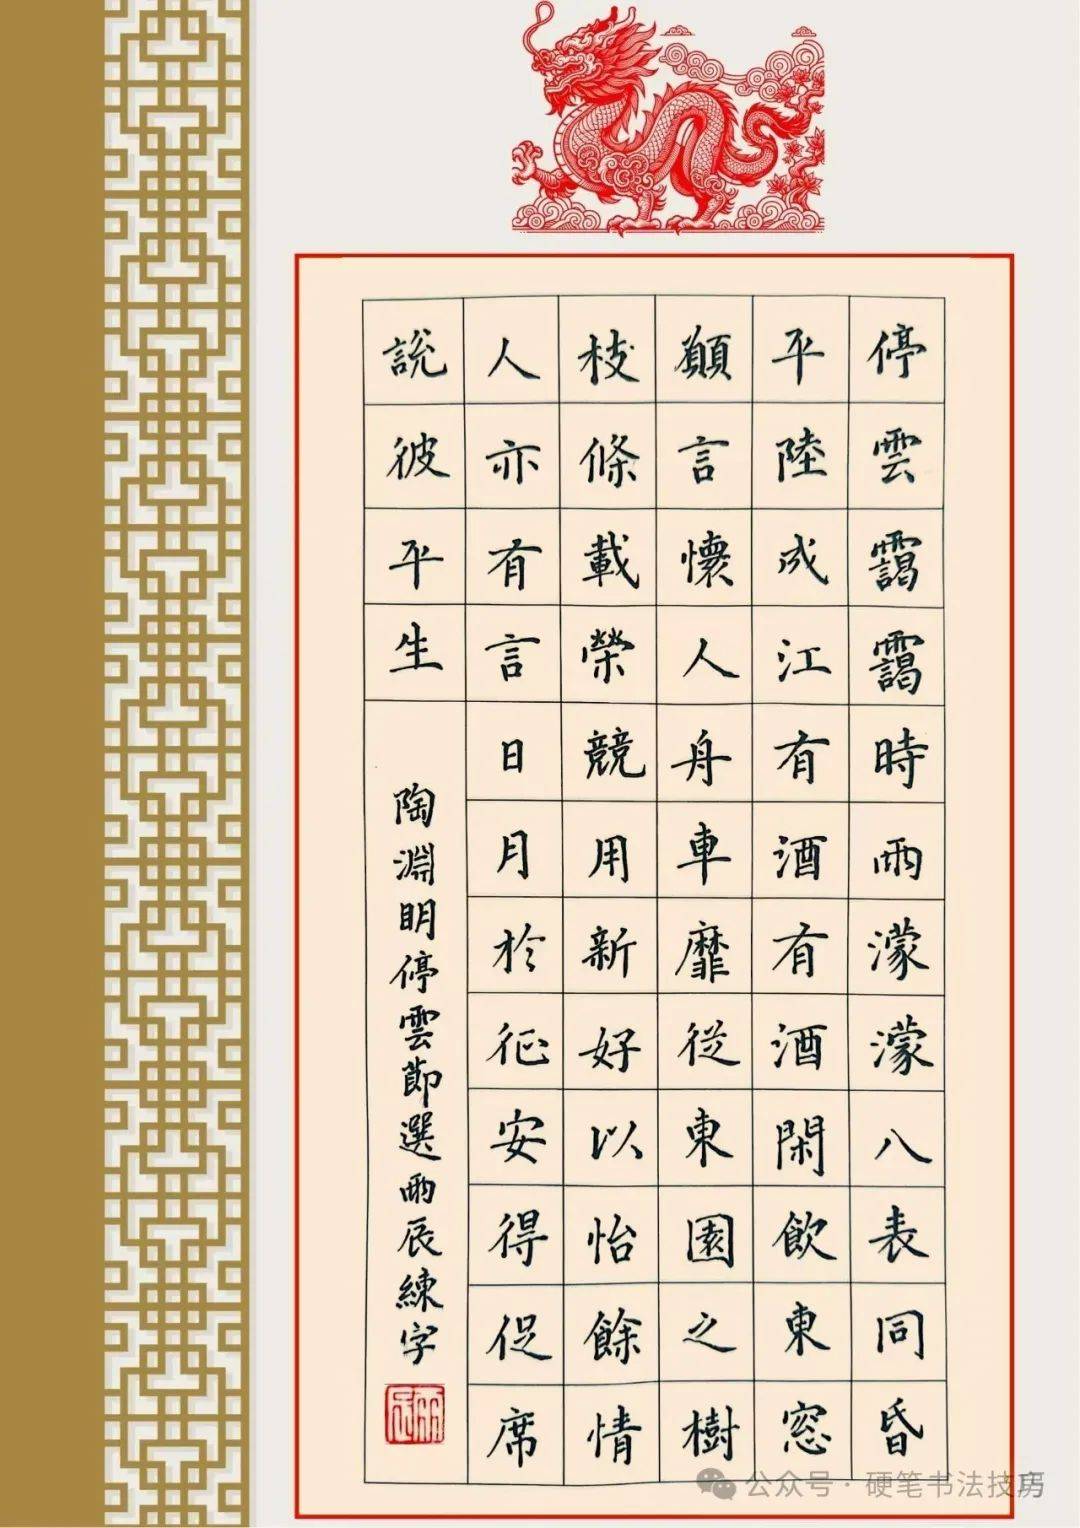 停雲靄靄時雨濛濛八表同昏
平陸成江有酒有酒閑飲東窓
願言懷人舟車靡從東園之樹
枝條載榮競用新好以怡餘情
人亦有言日月於征安得促席
說彼平生
陶淵明停雲節選雨辰練字
雨辰
公众号·硬笔书法技房